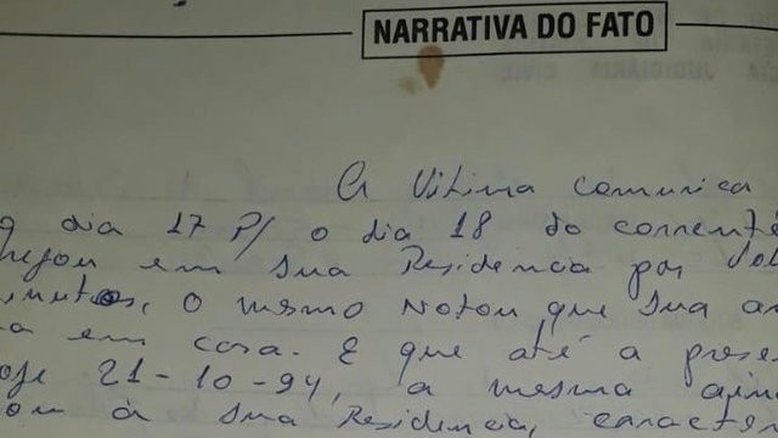 NARRATIVA DO FATO
A Vitima comunica
dia 17 P/ o dia 18 do corrente
em sua Residencia por
o mesmo Notou que sua
em casa. E que até a prese
21-10-94, a mesma ain
à sua Residencia, caracter